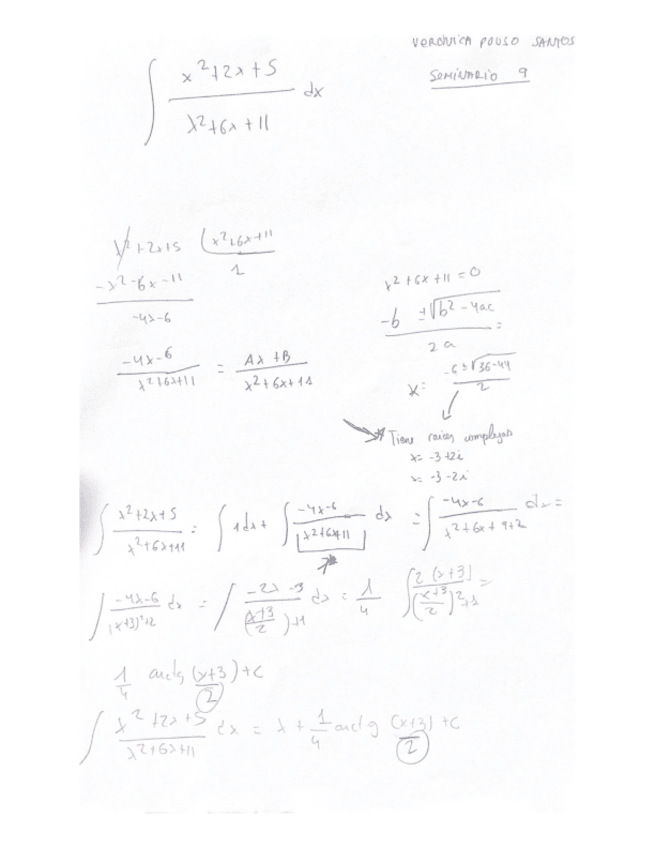 VERÓNICA POUSO SANTOS
SEMINARIO 9
∫ (x²+2x+5)/(x²+6x+11) dx
x²+2x+5 | x²+6x+11
-x²-6x-11 1
-4x-6
(-4x-6)/(x²+6x+11) = (Ax+B)/(x²+6x+11)
x²+6x+11=0
(-b ±√(b²-4ac))/(2a) =
x= (-6±√(36-44))/2
* Tiene raices complejas
x= -3+2i
x= -3-2i
∫ (x²+2x+5)/(x²+6x+11) = ∫ 1dx + ∫ (-4x-6)/(x²+6x+11) dx = ∫ (-4x-6)/(x²+6x+9+2) dx =
∫ (-4x-6)/((x+3)²+2) dx = ∫ (-2x-3)/(((x+3)/2)+1) dx = 1/4 ∫ (2(x+3))/(((x+3)/2)²+1) =
1/4 arctg (x+3)/2 + C
∫ (x²+2x+5)/(x²+6x+11) dx = x + 1/4 arctg (x+3)/2 + C